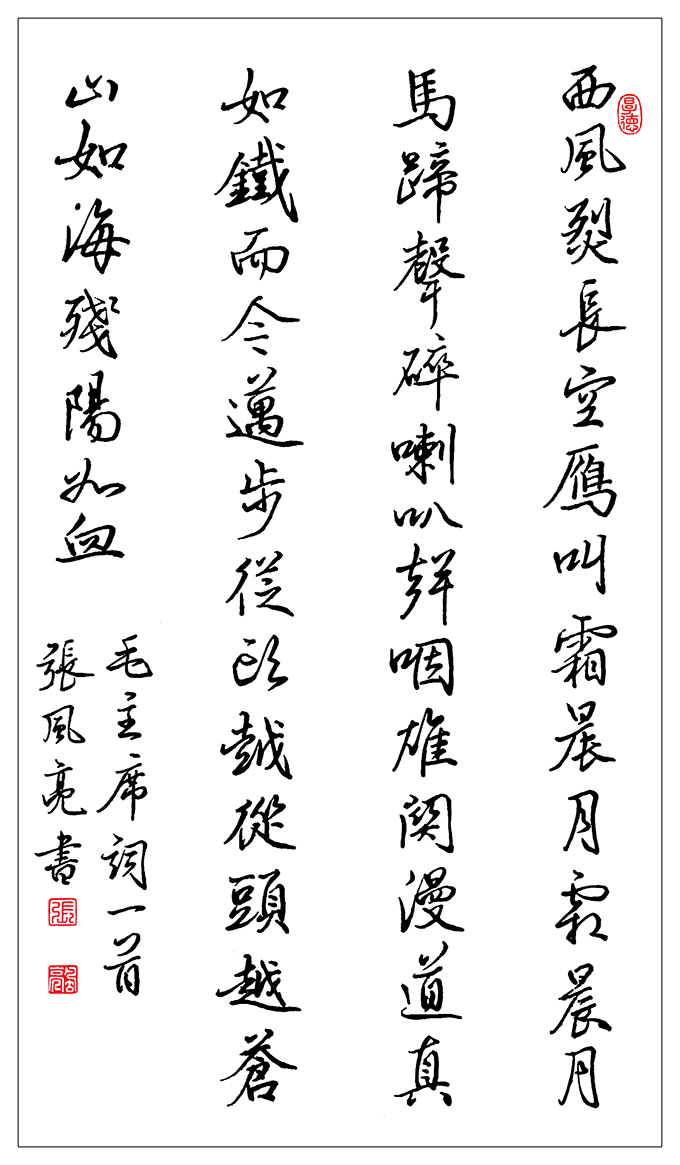 西風烈長空鴈叫霜晨月霜晨月
馬蹄聲碎喇叭聲咽雄関漫道真
如鐵而今邁步從頭越從頭越蒼
山如海殘陽如血
毛主席詞一首
張風亮書
張